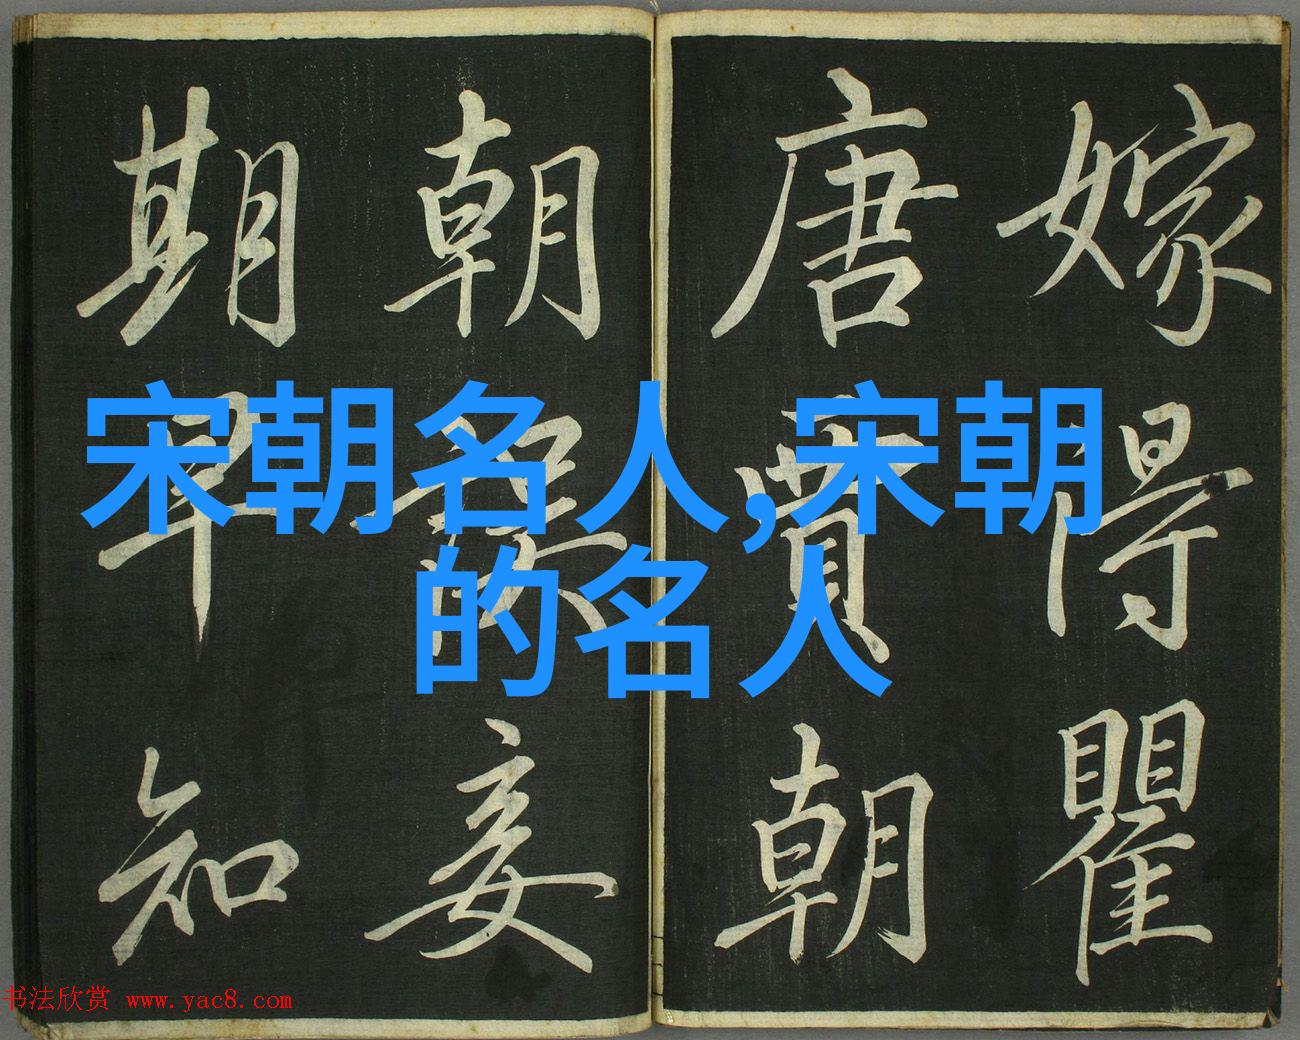 宋朝名人,宋朝
的名人
嫁得瞿
唐賈朝
朝妾
期早知
书法欣赏 www.yac8.com